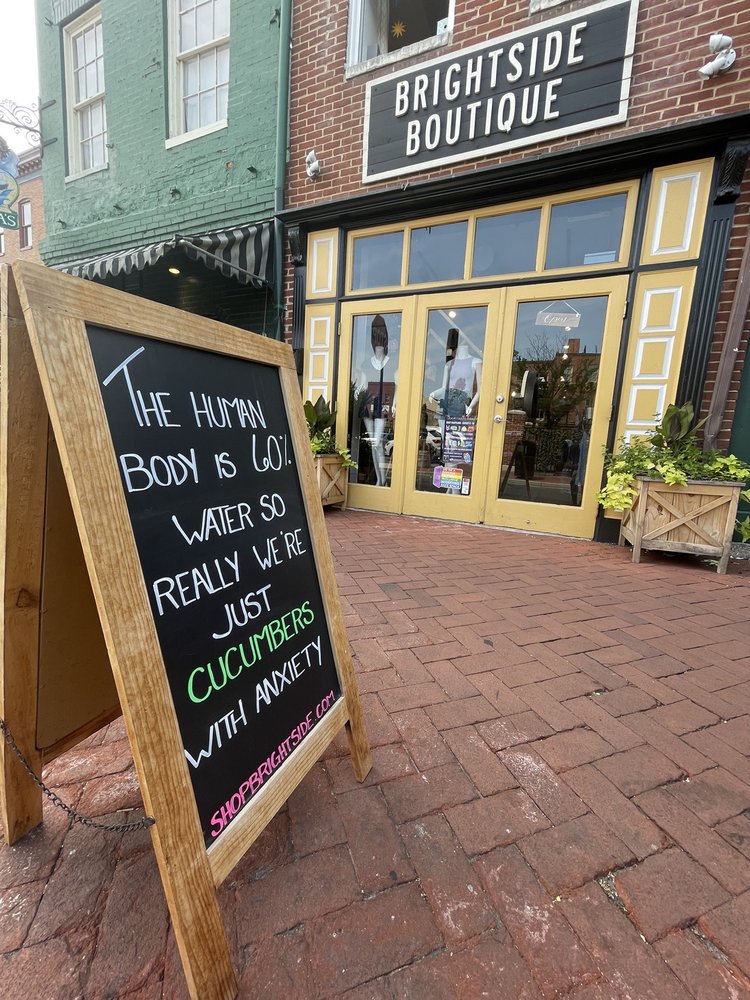 BRIGHTSIDE
BOUTIQUE
Open
AS
THE HUMAN
BODY IS 60%
WATER SO
REALLY WE'RE
JUST
CUCUMBERS
WITH ANXIETY
SHOPBRIGHTSIDE.COM